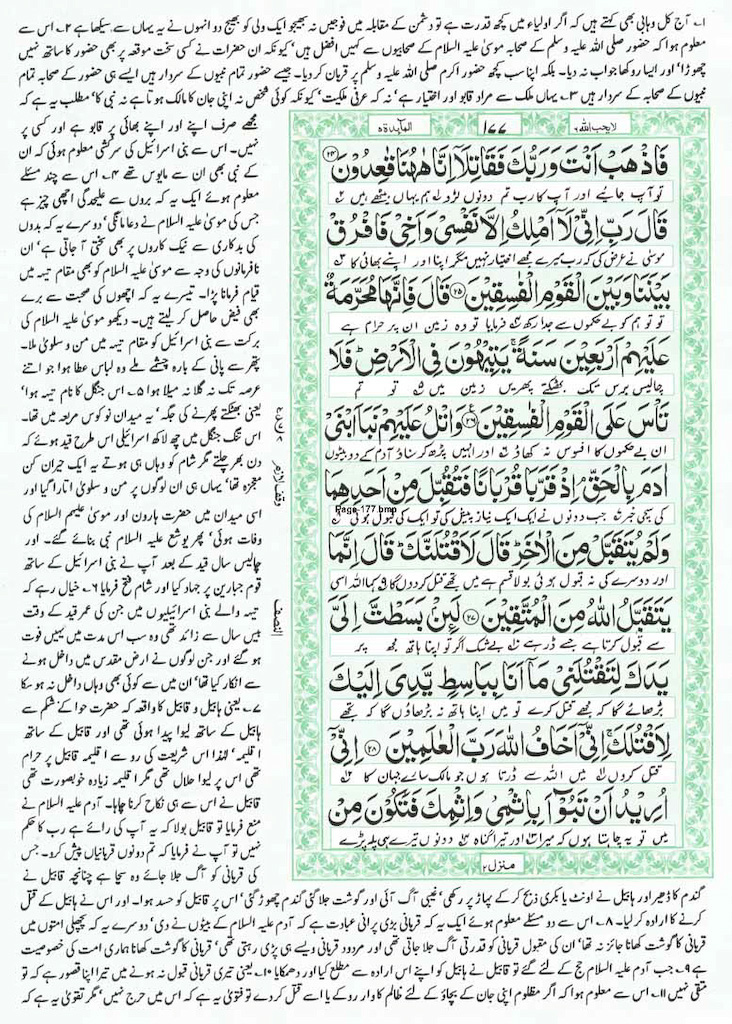 ۱۔ آج کل وہابی بھی کہتے ہیں کہ اگر اولیاء میں کچھ قدرت ہے تو دشمن کے مقابلہ میں فوجیں نہ بھیجو ایک ولی کو بھیج دو انہوں نے یہاں سے سیکھا ہے ۲۔ اس سے
معلوم ہوا کہ حضور صلی اللہ علیہ وسلم کے صحابہ موسیٰ علیہ السلام کے صحابیوں سے کہیں افضل ہیں' کیونکہ ان حضرات نے کسی سخت موقعہ پر بھی حضور کا ساتھ نہیں
چھوڑا' اور ایسا روکھا جواب نہ دیا۔ بلکہ اپنا سب کچھ حضور اکرم صلی اللہ علیہ وسلم پر قربان کر دیا۔ جیسے حضور تمام نبیوں کے سردار ہیں ایسے ہی حضور کے صحابہ تمام
نبیوں کے صحابہ کے سردار ہیں ۳۔ یہاں ملک سے مراد قابو اور اختیار ہے' نہ کہ عرفی ملکیت' کیونکہ کوئی شخص نہ اپنی جان کا مالک ہوتا ہے نہ نبی کا' مطلب یہ ہے کہ
لا یحب اللہ ۶
۱۷۷
المآیدة ۵
فَاذْهَبْ اَنْتَ وَرَبُّكَ فَقَاتِلَآ اِنَّا هٰهُنَا قٰعِدُوْنَ ۲۴
تو آپ جائیے اور آپ کا رب تم دونوں لڑو لہ ہم یہاں بیٹھے ہیں
قَالَ رَبِّ اِنِّیْ لَآ اَمْلِكُ اِلَّا نَفْسِیْ وَاَخِیْ فَافْرُقْ
موسیٰ نے عرض کی کہ رب میرے مجھے اختیار نہیں مگر اپنا اور اپنے بھائی کا
بَیْنَنَا وَبَیْنَ الْقَوْمِ الْفٰسِقِیْنَ ۲۵ قَالَ فَاِنَّهَا مُحَرَّمَةٌ
تو تو ہم کو بے حکموں سے جدا رکھ فرمایا تو وہ زمین ان پر حرام ہے
عَلَیْهِمْ اَرْبَعِیْنَ سَنَةً ۚ یَتِیْهُوْنَ فِی الْاَرْضِ ؕ فَلَا
چالیس برس تک بھٹکتے پھریں زمین میں تو تم
تَاْسَ عَلَی الْقَوْمِ الْفٰسِقِیْنَ ۲۶ وَاتْلُ عَلَیْهِمْ نَبَاَ ابْنَیْ
ان بے حکموں کا افسوس نہ کھاؤ اور انہیں پڑھ کر سناؤ آدم کے دو بیٹوں
اٰدَمَ بِالْحَقِّ ۘ اِذْ قَرَّبَا قُرْبَانًا فَتُقُبِّلَ مِنْ اَحَدِهِمَا
کی سچی خبر جب دونوں نے ایک ایک نیاز پیش کی تو ایک کی قبول ہوئی
Page-177.bmp
وَلَمْ یُتَقَبَّلْ مِنَ الْاٰخَرِ ؕ قَالَ لَاَقْتُلَنَّكَ ؕ قَالَ اِنَّمَا
اور دوسرے کی نہ قبول ہوئی بولا قسم ہے میں تجھے قتل کر دوں گا کہا اللہ اسی
یَتَقَبَّلُ اللّٰهُ مِنَ الْمُتَّقِیْنَ ۲۷ لَئِنْۢ بَسَطْتَّ اِلَیَّ
سے قبول کرتا ہے جسے ڈر ہے بے شک اگر تو اپنا ہاتھ مجھ پر
یَدَكَ لِتَقْتُلَنِیْ مَآ اَنَا بِبَاسِطٍ یَّدِیَ اِلَیْكَ
بڑھائے گا کہ مجھے قتل کرے تو میں اپنا ہاتھ نہ بڑھاؤں گا کہ تجھے
لِاَقْتُلَكَ ۚ اِنِّیْٓ اَخَافُ اللّٰهَ رَبَّ الْعٰلَمِیْنَ ۲۸ اِنِّیْٓ
قتل کروں میں اللہ سے ڈرتا ہوں جو مالک سارے جہان کا
اُرِیْدُ اَنْ تَبُوْٓاَ بِاِثْمِیْ وَاِثْمِكَ فَتَكُوْنَ مِنْ
میں تو یہ چاہتا ہوں کہ میرا اور تیرا گناہ دونوں تیرے ہی پلہ پڑے
منزل ۲
وقف لازم
النصف
مجھے صرف اپنے اور اپنے بھائی پر قابو ہے اور کسی پر
نہیں۔ اس سے بنی اسرائیل کی سرکشی معلوم ہوئی کہ ان
کے نبی بھی ان سے مایوس تھے ۴۔ اس سے چند مسئلے
معلوم ہوئے ایک یہ کہ بروں سے علیحدگی اچھی چیز ہے
جس کی موسیٰ علیہ السلام نے دعا مانگی' دوسرے یہ کہ بدوں
کی بدکاری سے نیک کاروں پر بھی سختی آ جاتی ہے' ان
نافرمانوں کی وجہ سے موسیٰ علیہ السلام کو بھی مقام تیہ میں
قیام فرمانا پڑا۔ تیسرے یہ کہ اچھوں کی صحبت سے برے
بھی فیض حاصل کر لیتے ہیں۔ دیکھو موسیٰ علیہ السلام کی
برکت سے بنی اسرائیل کو مقام تیہ میں من و سلویٰ ملا۔
پتھر سے پانی کے بارہ چشمے ملے وہ لباس عطا ہوا جو اتنے
عرصہ تک نہ گلا نہ میلا ہوا ۵۔ اس جنگل کا نام تیہ ہوا'
یعنی بھٹکتے پھرنے کی جگہ' یہ میدان نو کوس مربعہ میں تھا۔
اس تنگ جنگل میں چھ لاکھ اسرائیلی اس طرح قید ہوئے کہ
دن بھر چلتے مگر شام کو وہاں ہی ہوتے یہ ایک حیران کن
معجزہ تھا' یہاں ہی ان لوگوں پر من و سلویٰ اتارا گیا اور
اسی میدان میں حضرت ہارون اور موسیٰ علیہم السلام کی
وفات ہوئی' پھر یوشع علیہ السلام نبی بنائے گئے۔ اور
چالیس سال قید کے بعد آپ نے بنی اسرائیل کے ساتھ
قوم جبارین پر جہاد کیا اور شام فتح فرمایا ۶۔ خیال رہے کہ
تیہ والے بنی اسرائیلیوں میں جن کی عمر قید کے وقت
بیس سال سے زائد تھی وہ سب اس مدت میں یہیں فوت
ہو گئے اور جن لوگوں نے ارض مقدس میں داخل ہونے
سے انکار کیا تھا' ان میں سے کوئی بھی وہاں داخل نہ ہو سکا
۷۔ یعنی ہابیل و قابیل کا واقعہ کہ حضرت حوا کے شکم سے
ہابیل کے ساتھ لیوا پیدا ہوئی تھی اور قابیل کے ساتھ
اقلیمہ' لہٰذا اس شریعت کی رو سے اقلیمہ قابیل پر حرام
تھی اس پر لیوا حلال تھی مگر اقلیمہ زیادہ خوبصورت تھی
قابیل نے اس سے ہی نکاح کرنا چاہا۔ آدم علیہ السلام نے
منع فرمایا تو قابیل بولا کہ یہ آپ کی رائے ہے رب کا حکم
نہیں تو آپ نے فرمایا کہ تم دونوں قربانیاں پیش کرو۔ جس
کی قربانی کو آگ جلا جائے وہ سچا ہے چنانچہ قابیل نے
گندم کا ڈھیر اور ہابیل نے اونٹ یا بکری ذبح کر کے پہاڑ پر رکھی' غیبی آگ آئی اور گوشت جلا گئی گندم چھوڑ گئی' اس پر قابیل کو حسد ہوا۔ اور اس نے ہابیل کے قتل
کرنے کا ارادہ کر لیا۔ ۸۔ اس سے دو مسئلے معلوم ہوئے ایک یہ کہ قربانی بڑی پرانی عبادت ہے کہ آدم علیہ السلام کے بیٹوں نے دی' دوسرے یہ کہ پچھلی امتوں میں
قربانی کا گوشت کھانا جائز نہ تھا' ان کی مقبول قربانی کو قدرتی آگ جلا جاتی تھی اور مردود قربانی ویسے ہی پڑی رہتی تھی' قربانی کا گوشت کھانا ہماری امت کی خصوصیت
ہے ۹۔ جب آدم علیہ السلام حج کے لئے گئے تو قابیل نے ہابیل کو اپنے اس ارادہ سے مطلع کیا اور دھمکایا ۱۰۔ یعنی تیری قربانی قبول نہ ہونے میں تیرا اپنا قصور ہے کہ تو
متقی نہیں ۱۱۔ اس سے معلوم ہوا کہ اگر مظلوم اپنی جان کے بچاؤ کے لئے ظالم کا وار روکے یا اسے قتل کر دے تو فتویٰ یہ ہے کہ اس میں حرج نہیں' مگر تقویٰ یہ ہے کہ